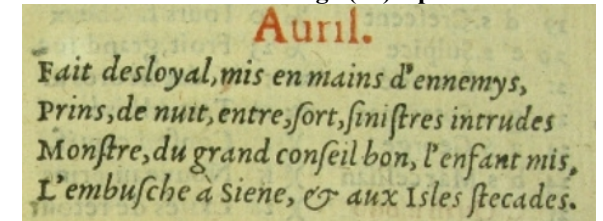 Auril.
Fait desloyal,mis en mains d'ennemys,
Prins,de nuit,entre,ſort,ſiniſtres intrudes
Monſtre,du grand conſeil bon, l'enfant mis,
L'embuſche à Siene, & aux Isles ſtecades.